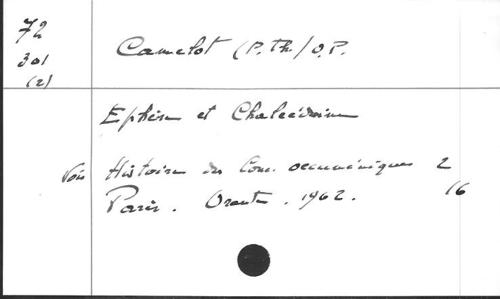 72
301
(2)
Camelot (P. Th) O.P.
Ephèse et Chalcédoine
Voir Histoire des Conc. oecuméniques 2
Paris. Orante. 1962. 16